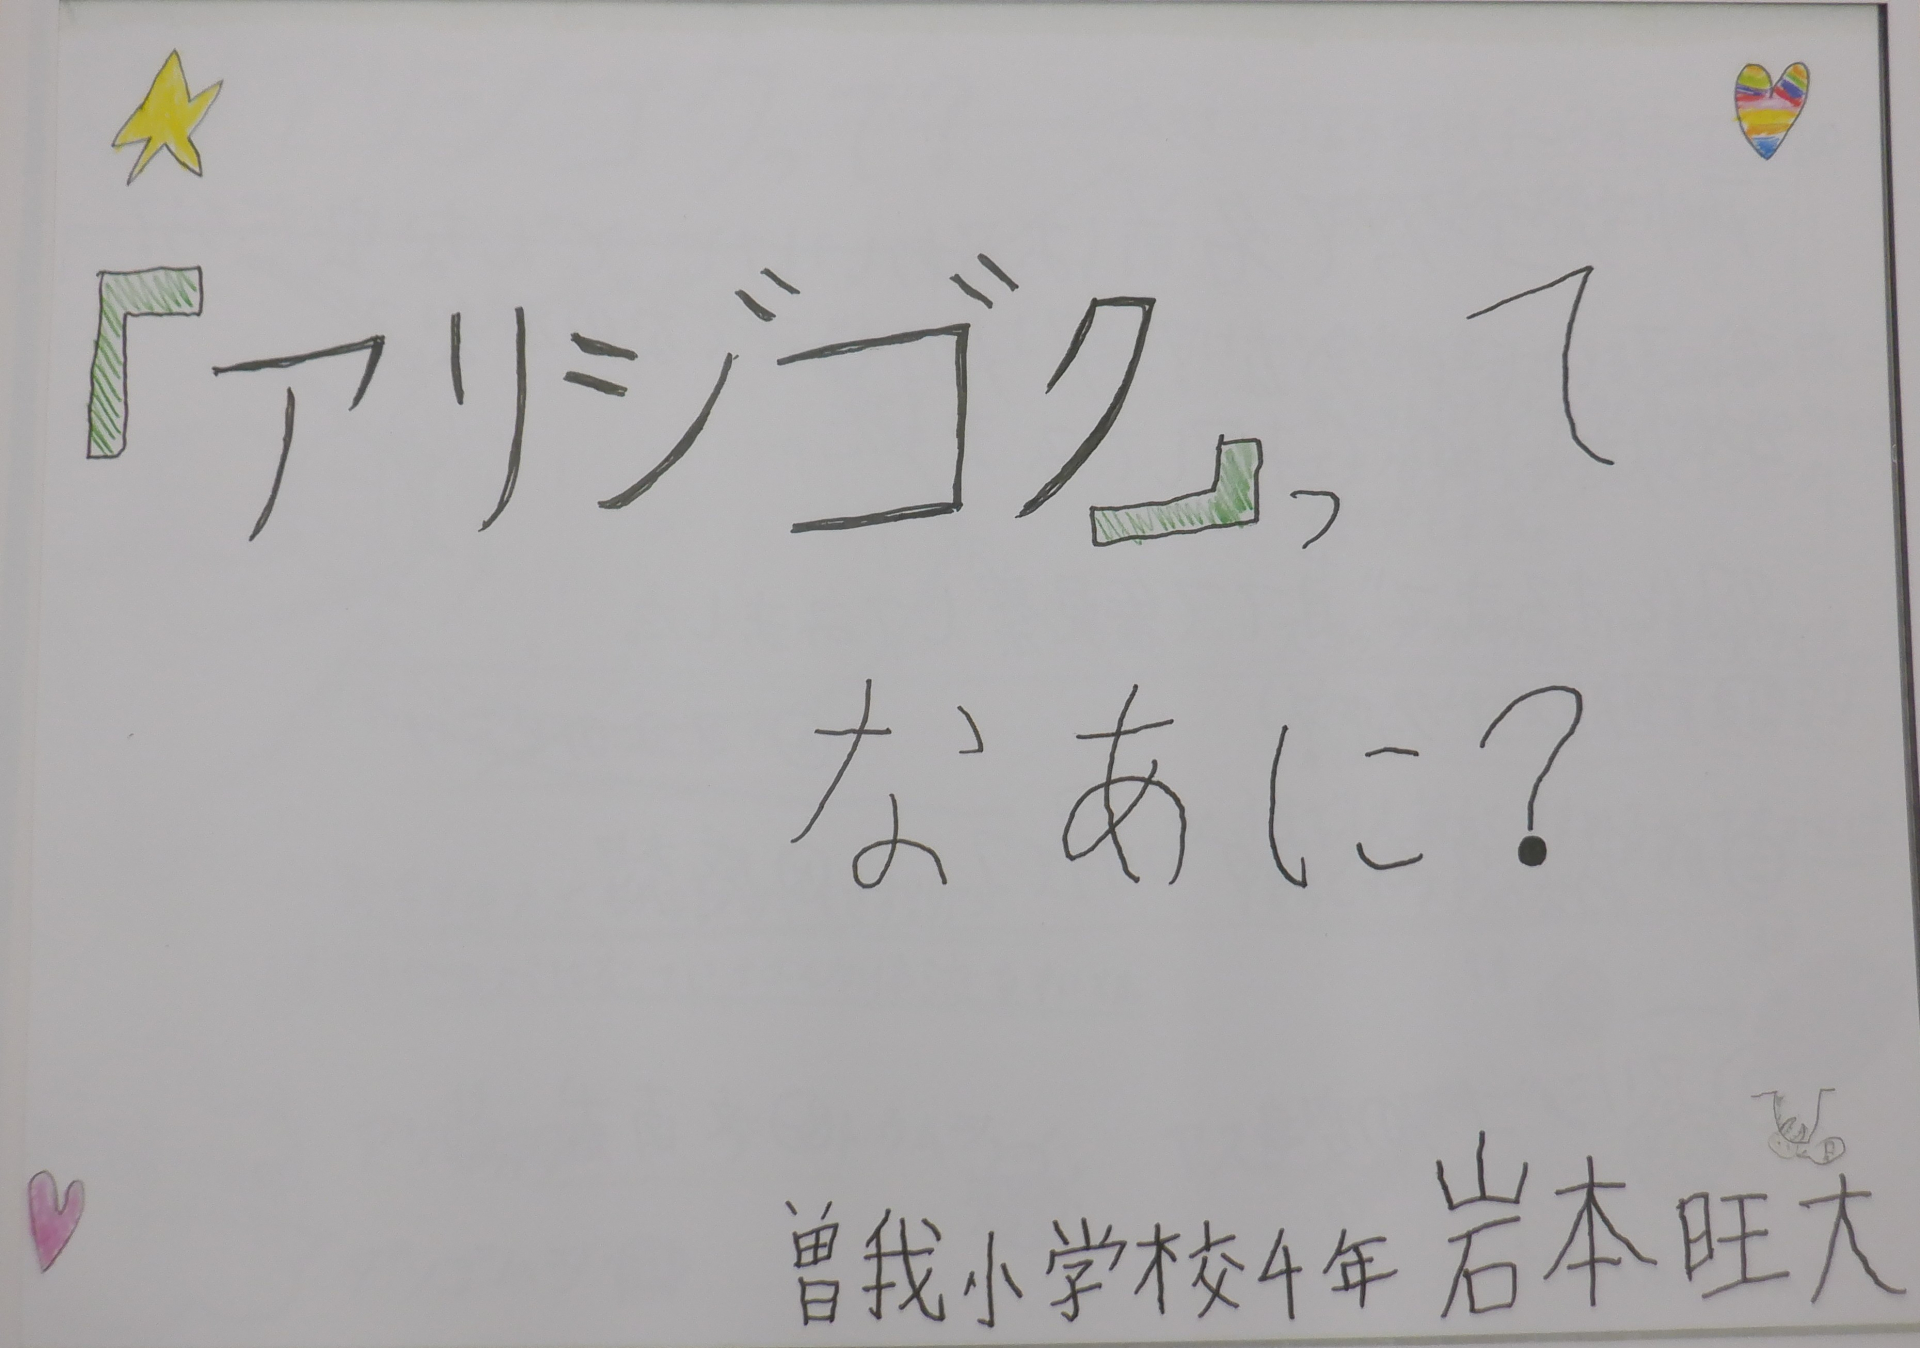 『アリジゴク』って
なあに?
曽我小学校4年 岩本旺大